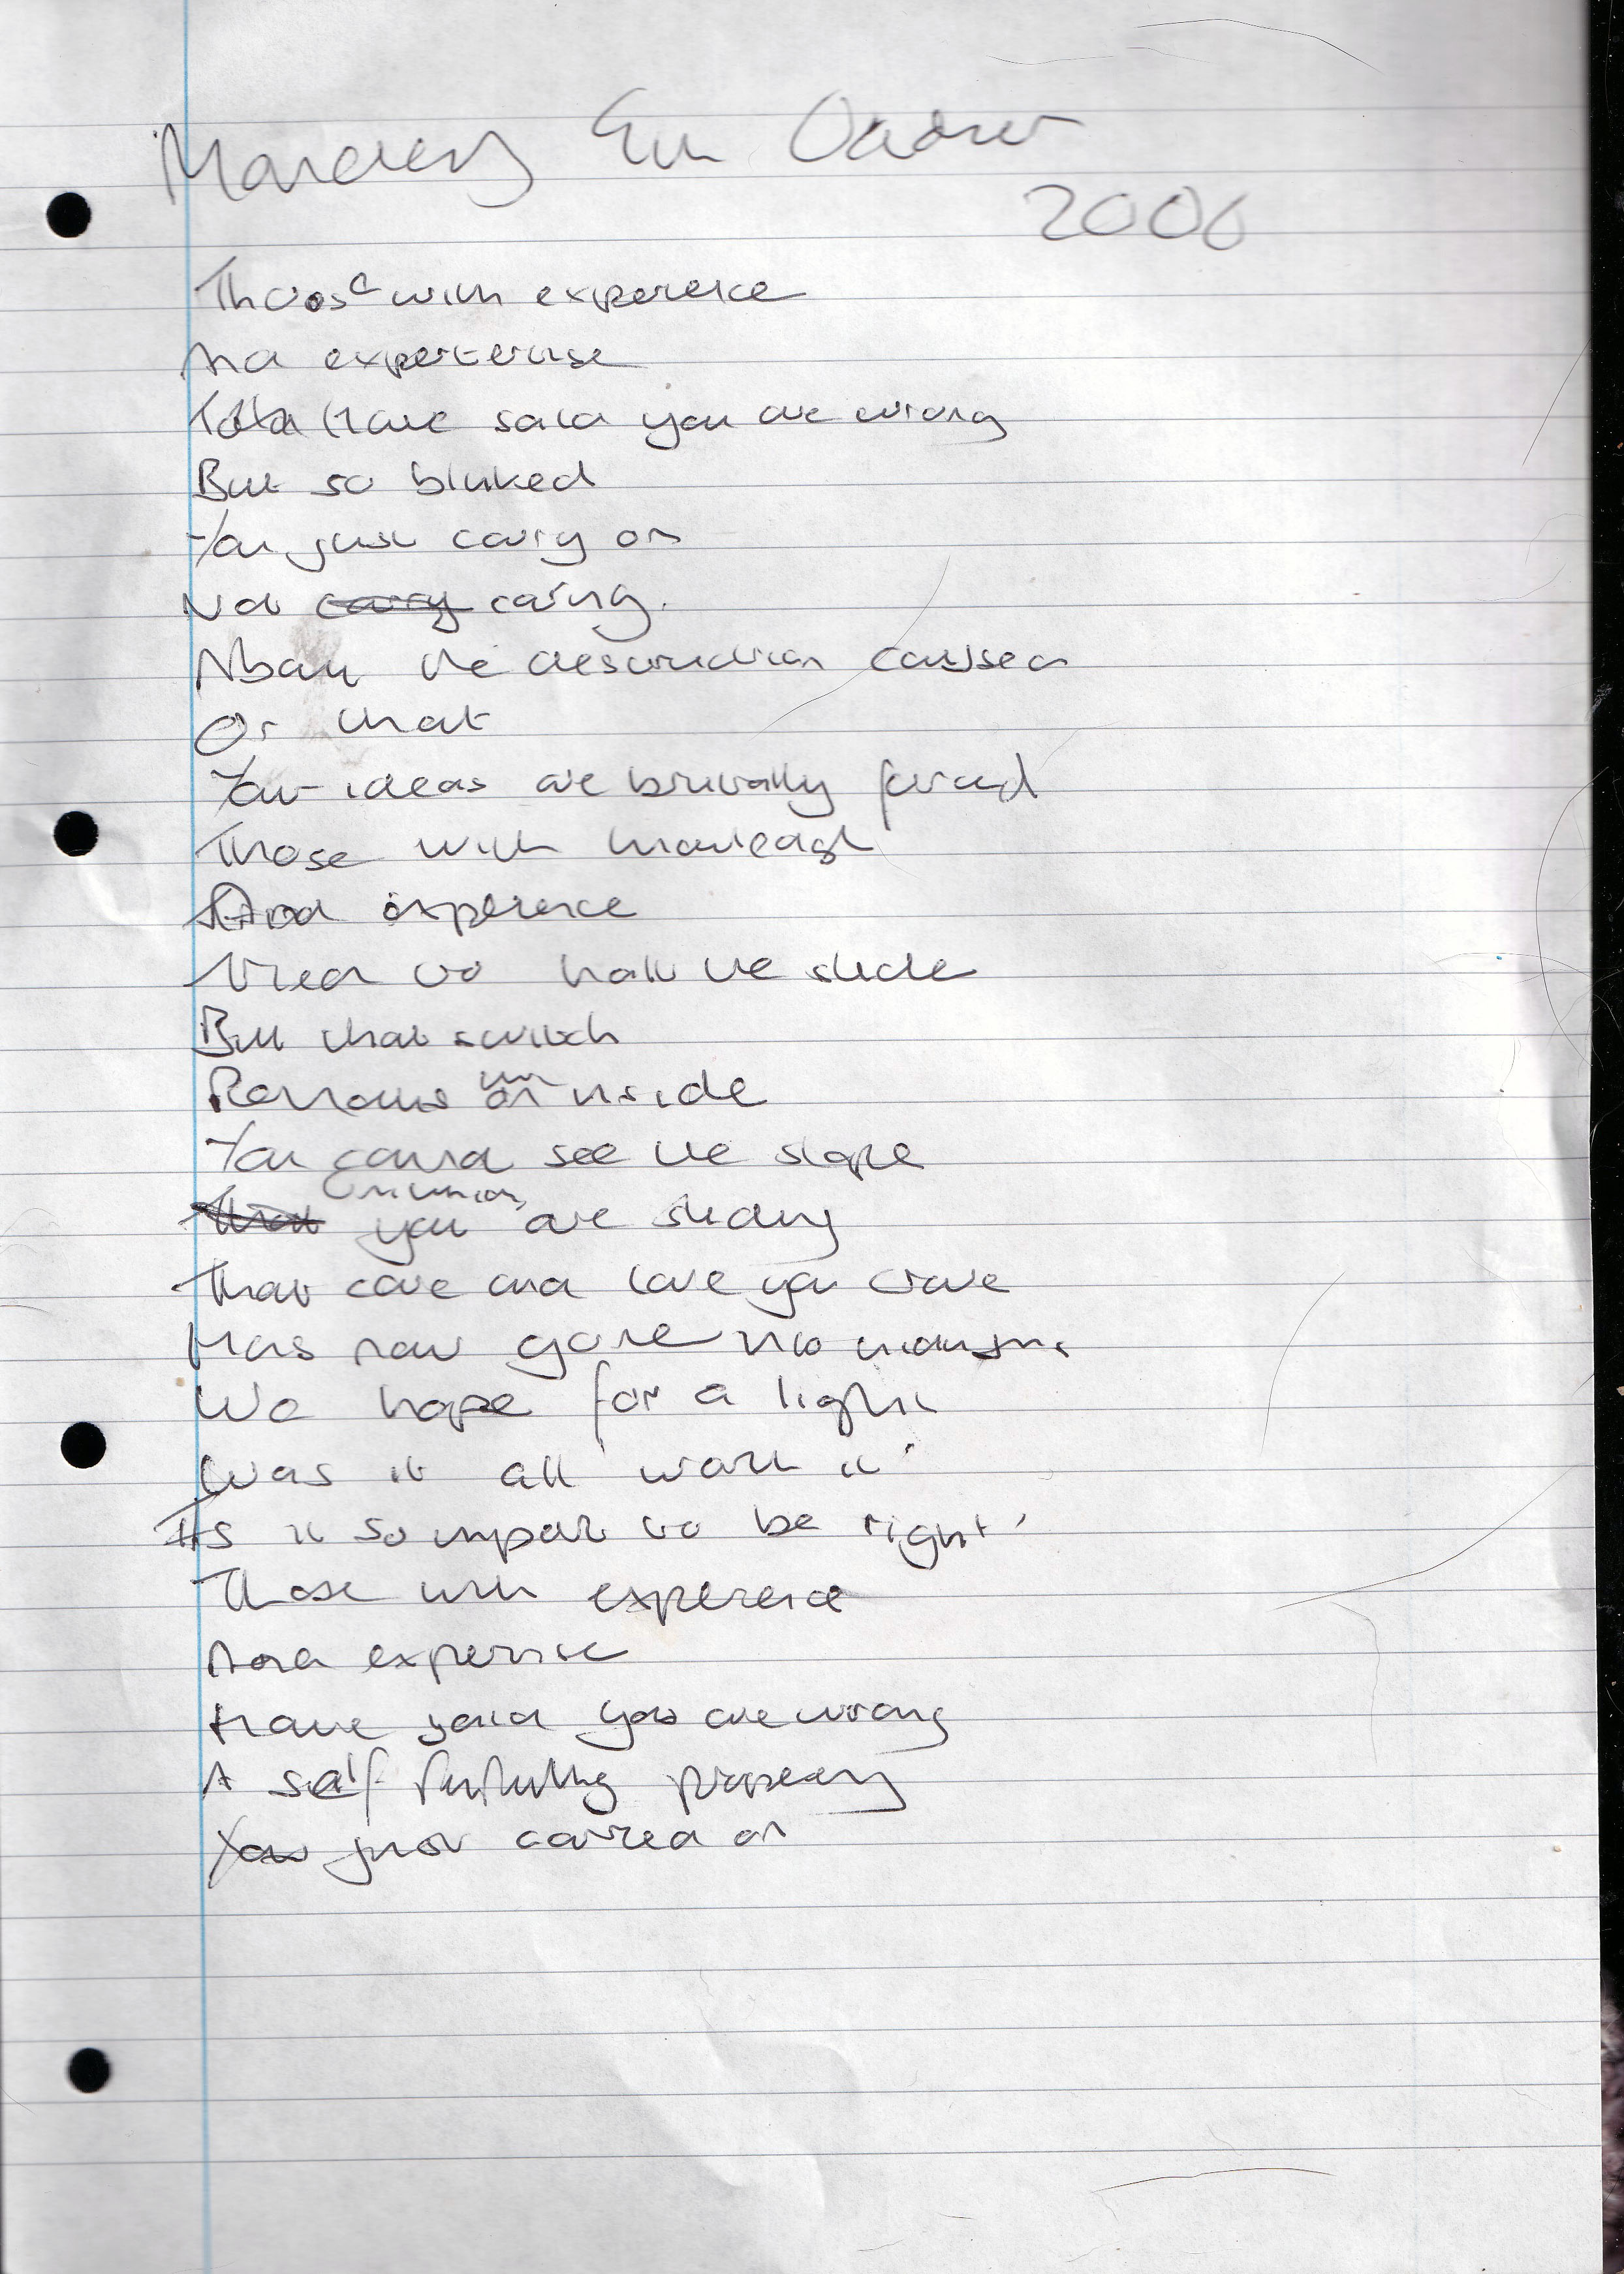 Monday 6th October
2006
Those with experience
And experterise
Have said you are wrong
But so blinked
You just carry on
Not carry caring.
About the destruction caused
Or that
Your ideas are brutally forced
Those with knowledge
And experience
Tried to halt the slide
But that switch
Remains on inside
You cound see the slope
That you are sliding
That care and love you crave
Has now gone into
We hope for a light
Was it all worth it
Is it so import to be right
Those with experence
And experise
Have said you are wrong
A self fulfulling
You just carred on